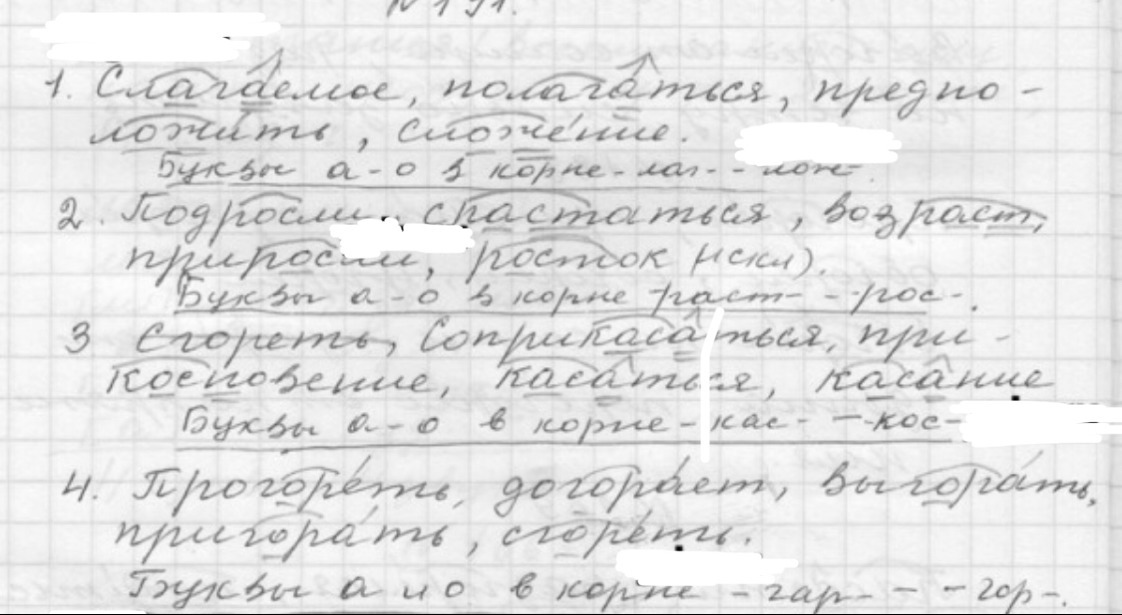 N 191.
1. Слагаемое, полагаться, предпо-
ложить, сложение.
Буквы а-о в корне -лаг- - лож-.
2. Подросли, срастаться, возраст,
приросли, росток (искл).
Буквы а-о в корне -раст- - -рос-.
3 Сгореть, Соприкасаться, при-
косновение, касаться, касание
Буквы а-о в корне -кас- - -кос-
4. Прогореть, догорает, выгорать,
пригорать, сгореть.
Буквы а и о в корне -гар- - -гор-.